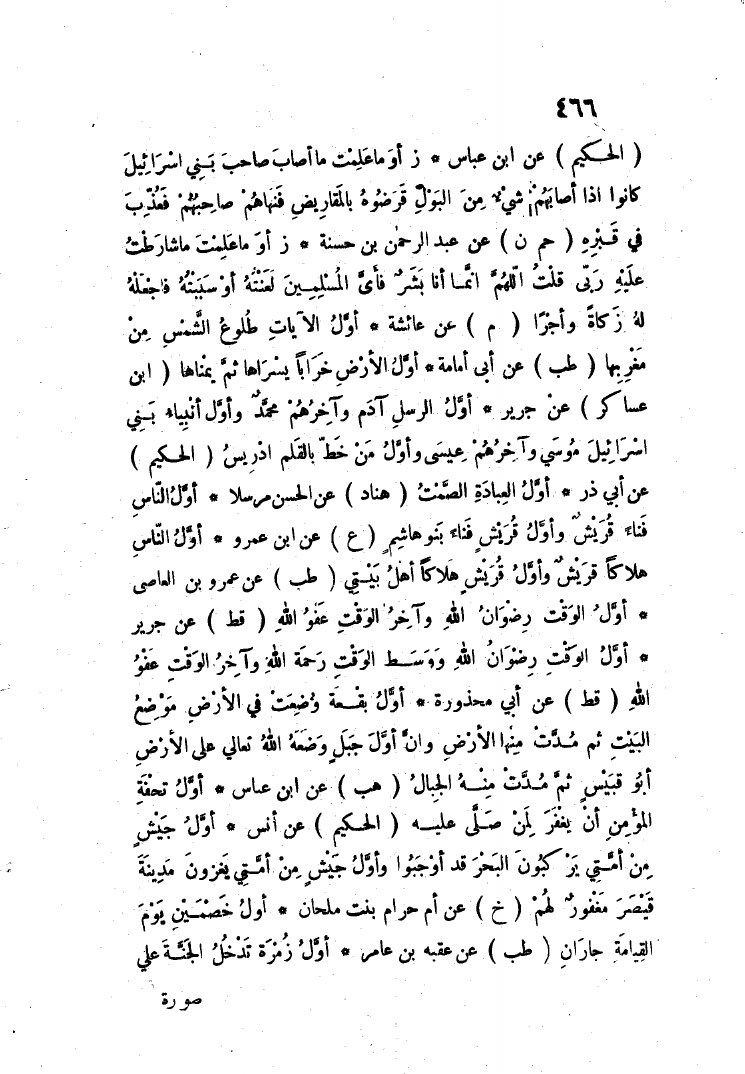 ٤٦٦
( الحكيم ) عن ابن عباس * ز أوَ ماعَلِمْت ما أصابَ صاحبَ بَنِي اسْرَائِيلَ
كانوا اذا أصابَهُمْ شيْءٌ مِنَ البَوْلِ قَرَضُوهُ بالمَقَارِيضِ فَنَهَاهُمْ صاحِبُهُمْ فَعُذِّبَ
في قَبْرِهِ ( حم ن ) عن عبد الرحمٰن بن حسنة * ز أوَ ماعَلِمْتَ ماشارَطْتُ
عَلَيْهِ رَبّى قلْتُ اللّهُمَّ انَّما أنا بَشَرٌ فأىُّ المُسْلِمِينَ لَعَنْتُهُ أوْ سَبَبْتُهُ فاجْعَلْهُ
لهُ زَكاةً وأجْرًا ( م ) عن عائشة * أوَّلُ الآياتِ طُلوعُ الشَّمْسِ مِنْ
مَغْرِبِها ( طب ) عن أبى أمامة * أوَّلُ الأرْضِ خَرَاباً يسْرَاها ثمَّ يمْناها ( ابن
عساكر ) عنْ جرير * أوَّلُ الرسلِ آدَم وآخِرُهُمْ محمَّدٌ وأوَّل أنْبِياءِ بَنِي
اسْرَائِيلَ مُوسَي وآخِرُهُمْ عِيسَى وأوَّلُ مَنْ خَطَّ بالقَلَمِ ادْرِيسُ ( الحكيم )
عن أبي ذر * أوَّلُ العِبادَةِ الصَّمْتُ ( هناد ) عن الحسن مرسلا * أوَّلُ النّاسِ
فَناءً قُرَيْشٌ وأوَّلُ قُرَيْشٍ فَناءً بَنُو هاشِمٍ ( ع ) عن ابن عمرو * أوَّلُ النّاسِ
هلاكاً قرَيْشٌ وأوَّلُ قُرَيْشٍ هَلاكاً أهلُ بَيْتِي ( طب ) عن عمرو بن العاصى
* أوَّلُ الوَقْتِ رِضْوَانُ اللهِ وآخِرُ الوَقْتِ عَفْوُ اللهِ ( قط ) عن جرير
* أوَّلُ الوَقْتِ رِضْوَانُ اللهِ وَوَسَطُ الوَقْتِ رَحمَة اللهِ وآخِرُ الوَقْتِ عَفْوُ
اللهِ ( قط ) عن أبي محذورة * أوَّلُ بقْعةٍ وُضِعَتْ في الأرْضِ مَوْضِعُ
البَيْتِ ثم مُدَّتْ مِنْها الأرْضُ وانَّ أوَّلَ جَبَلٍ وَضَعَهُ اللهُ تعالي على الأرْضِ
أبُو قبَيْسٍ ثمَّ مُدَّتْ مِنْهُ الجِبالُ ( هب ) عن ابن عباس * أوَّلُ تحْفَةِ
المؤْمِنِ أنْ يغْفَرَ لِمَنْ صَلَّى عليه ( الحكيم ) عن أنس * أوَّلُ جَيْشٍ
مِنْ أمَّتِي يَرْكَبُونَ البَحْرَ قد أوْجَبُوا وأوَّلُ جَيْشٍ مِنْ أمَّتِي يَغزونَ مَدِينَةَ
قَيْصَرَ مَغْفورٌ لهُمْ ( خ ) عن أم حرام بنت ملحان * أولُ خَصْمَيْنِ يَوْمَ
القِيامَةِ جارَانِ ( طب ) عن عقبه بن عامر * أوَّلُ زُمْرَةٍ تَدْخُلُ الجَنَّةَ علي
صورة